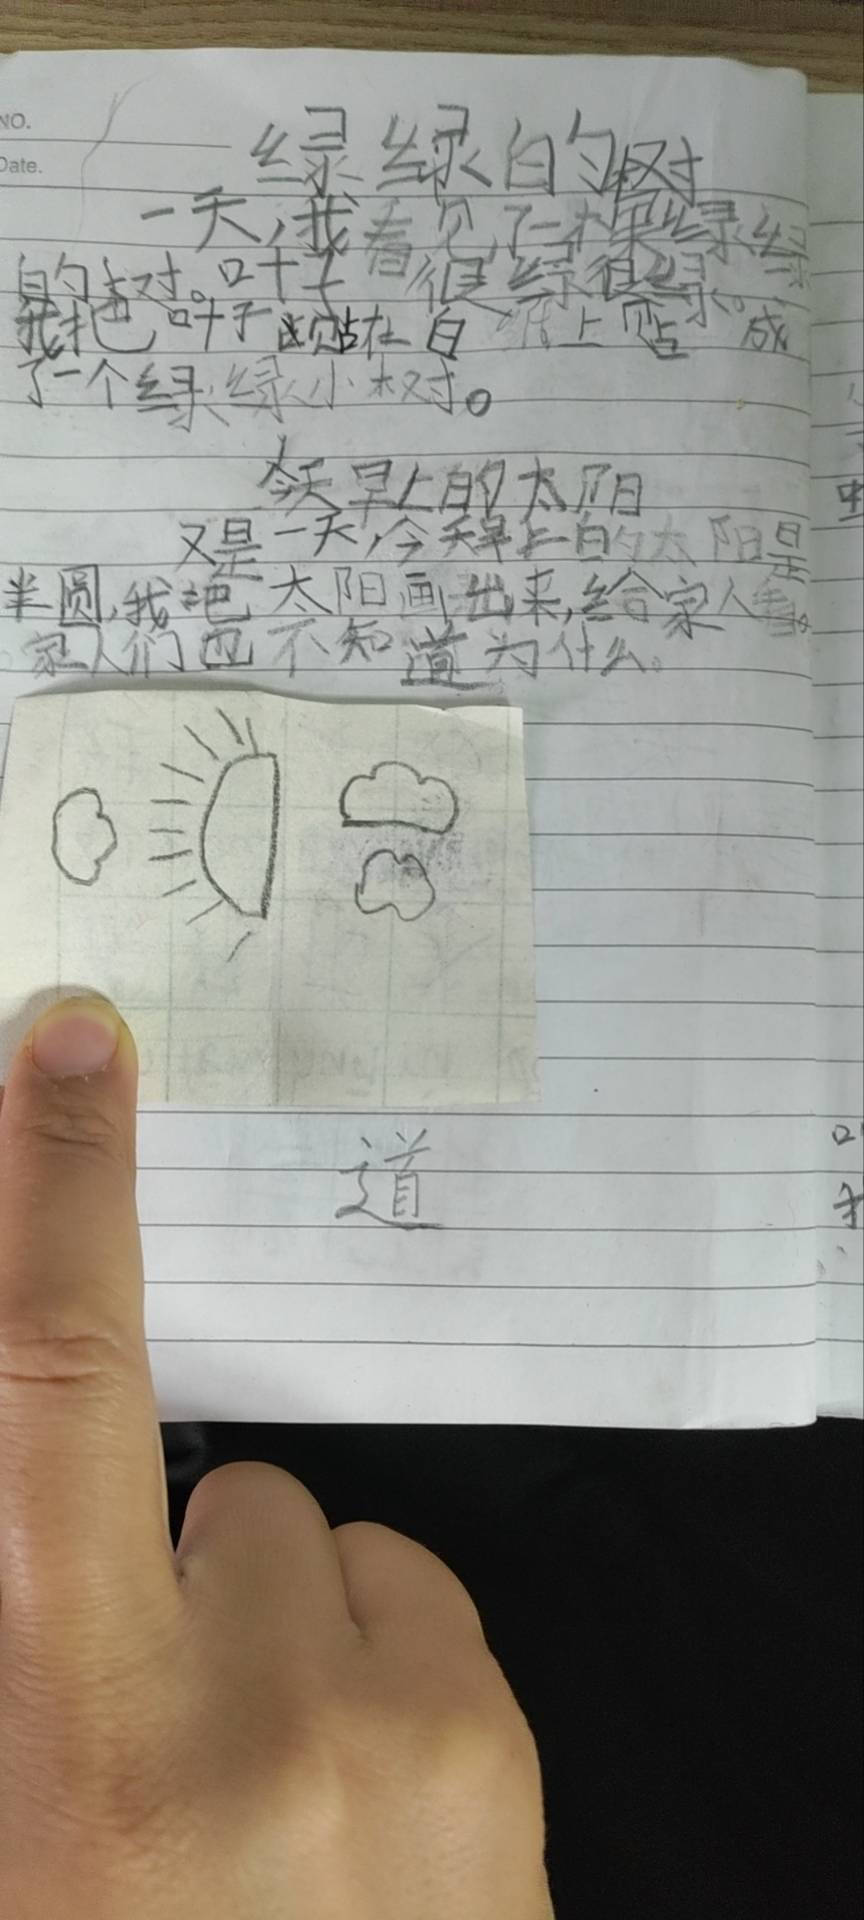 NO.
Date.
绿绿的树
一天,我看见了一棵绿绿
的树。叶子很绿很绿。
我把叶子贴在白纸上贴成
了一个绿绿小树。
今天早上的太阳
又是一天,今天早上的太阳是
半圆,我把太阳画出来,给家人看。
家人们也不知道为什么。
道